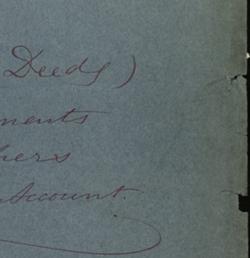 Deeds)
ments
hers
Account.